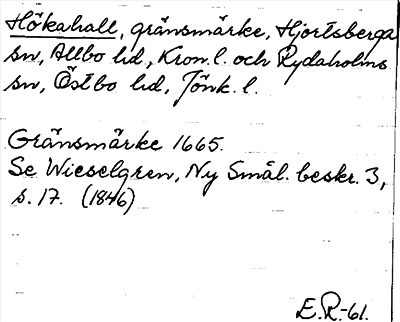 Hökahall, gränsmärke, Hjortsberga
sn, Allbo hd, Kron. l. och Rydaholms
sn, Östbo hd, Jönk. l.
Gränsmärke 1665.
Se Wieselgren, Ny Smål. beskr. 3,
s. 17. (1846)
E.R.-61.